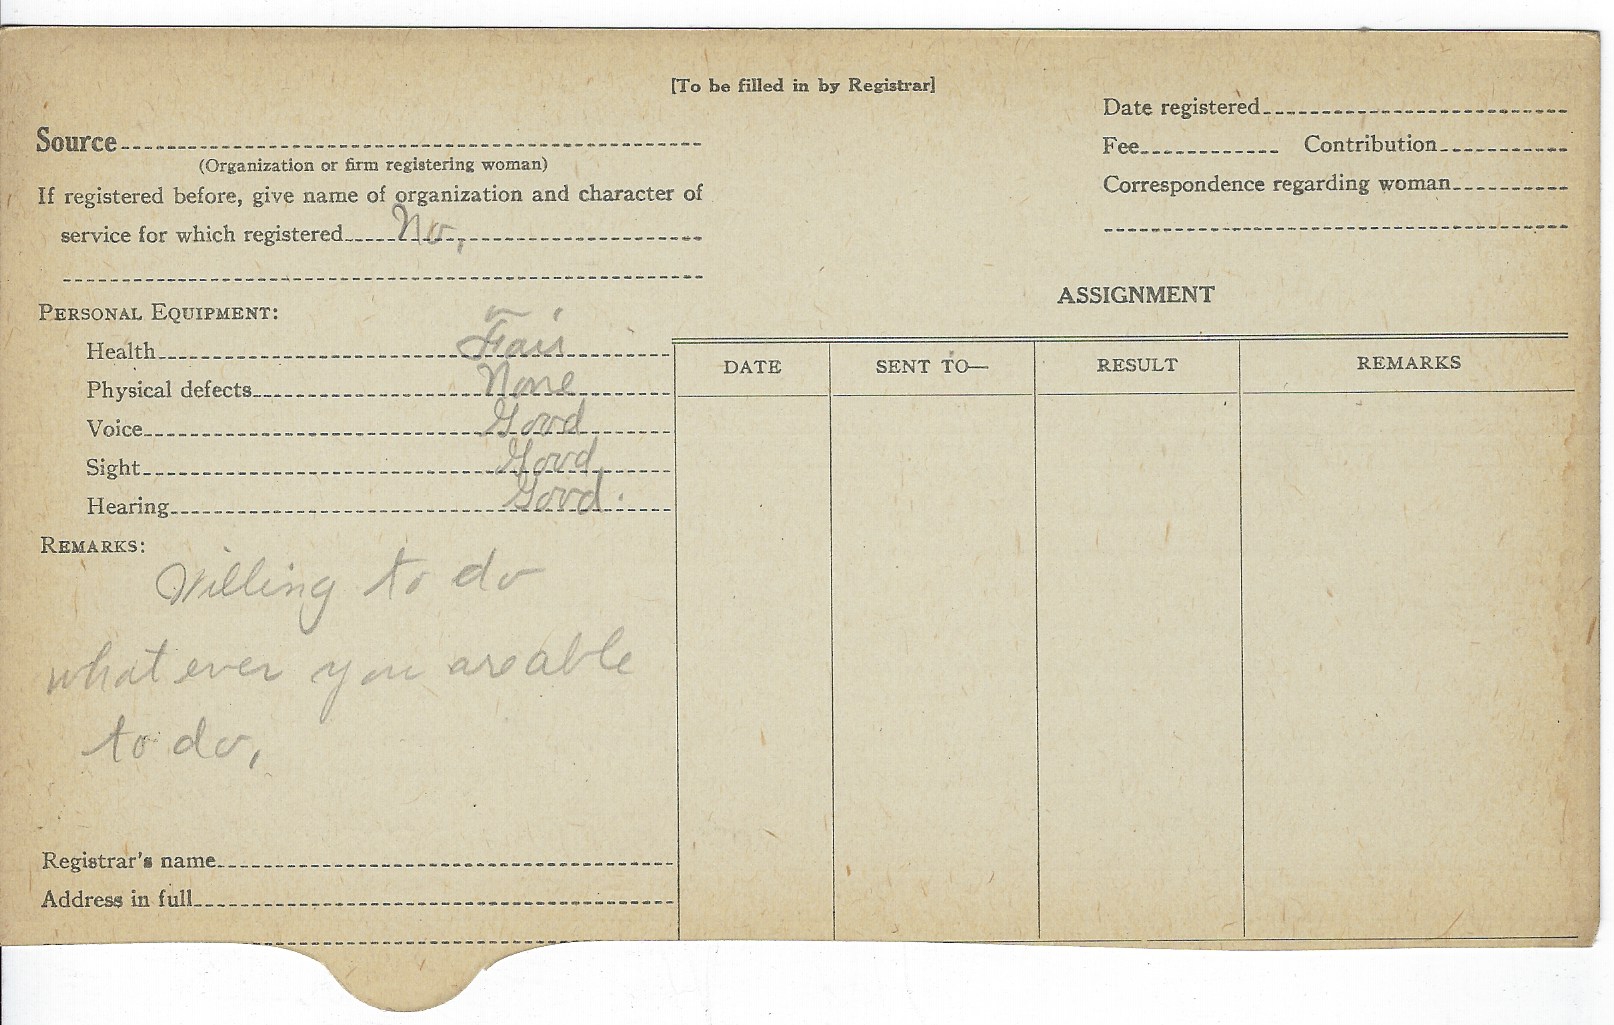 [To be filled in by Registrar]
Source
(Organization or firm registering woman)
If registered before, give name of organization and character of
service for which registered No,
Date registered
Fee Contribution
Correspondence regarding woman
PERSONAL EQUIPMENT:
Health Fair
Physical defects None
Voice Good
Sight Good
Hearing Good.
REMARKS:
Willing to do
what ever you are able
to do,
Registrar's name
Address in full
ASSIGNMENT
DATE SENT TO— RESULT REMARKS